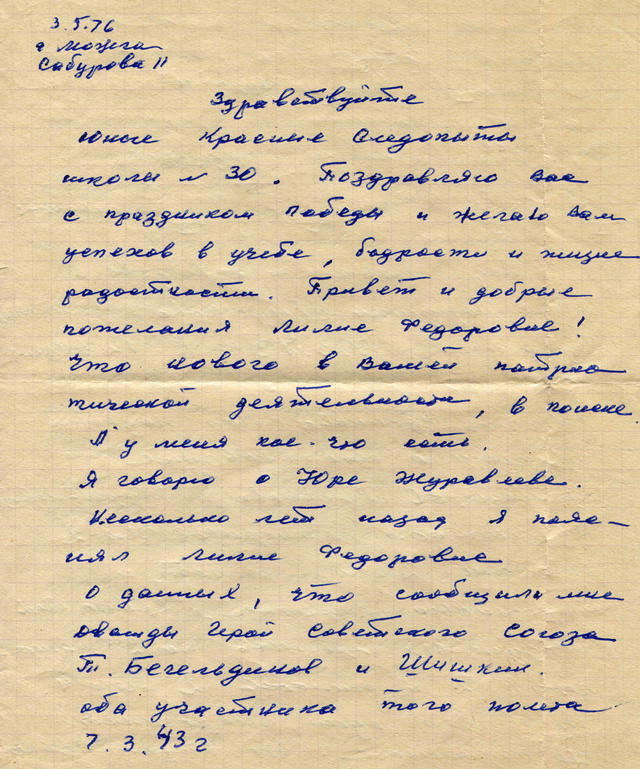 3.5.76
г Можга
Сабурова 11
Здравствуйте
юные Красные Следопыты
школы N 30. Поздравляю Вас
с праздником Победы и желаю Вам
успехов в учебе, бодрости и жизне
радостности. Привет и добрые
пожелания Лилие Федоровне!
Что нового в Вашей патрио
тической деятельности, в поиске
А у меня кое-что есть.
Я говорю о Юре Журавлеве.
Несколько лет назад я пояс-
нял Лилие Федоровне
о данных, что сообщили мне
дважды Герой Советского Союза
Т. Бегельдинов и Шишкин.
оба участника того полета
7.3.43 г